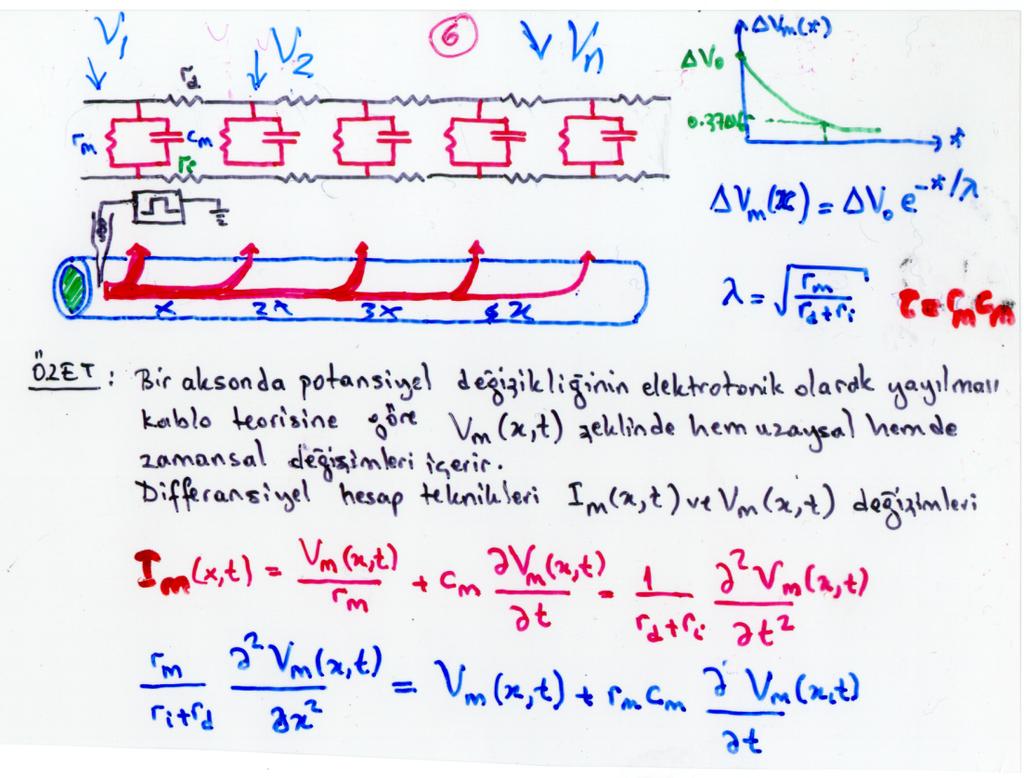 V₁ V₂ 6 Vₙ
r_d
r_m c_m
ΔVₘ(x)
ΔV₀
0.37ΔV₀
x
ΔVₘ(x) = ΔV₀ e^(-x/λ)
λ = √(r_m/(r_d+r_i)) τ = r_m c_m
x 2x 3x 4x
ÖZET: Bir aksonda potansiyel değişikliğinin elektrotonik olarak yayılması
kablo teorisine göre Vₘ(x,t) şeklinde hem uzaysal hemde
zamansal değişimleri içerir.
Differansiyel hesap teknikleri Iₘ(x,t) ve Vₘ(x,t) değişimleri
Iₘ(x,t) = Vₘ(x,t)/r_m + c_m ∂Vₘ(x,t)/∂t = 1/(r_d+r_i) ∂²Vₘ(x,t)/∂t²
r_m/(r_i+r_d) ∂²Vₘ(x,t)/∂x² = Vₘ(x,t) + r_m c_m ∂Vₘ(x,t)/∂t